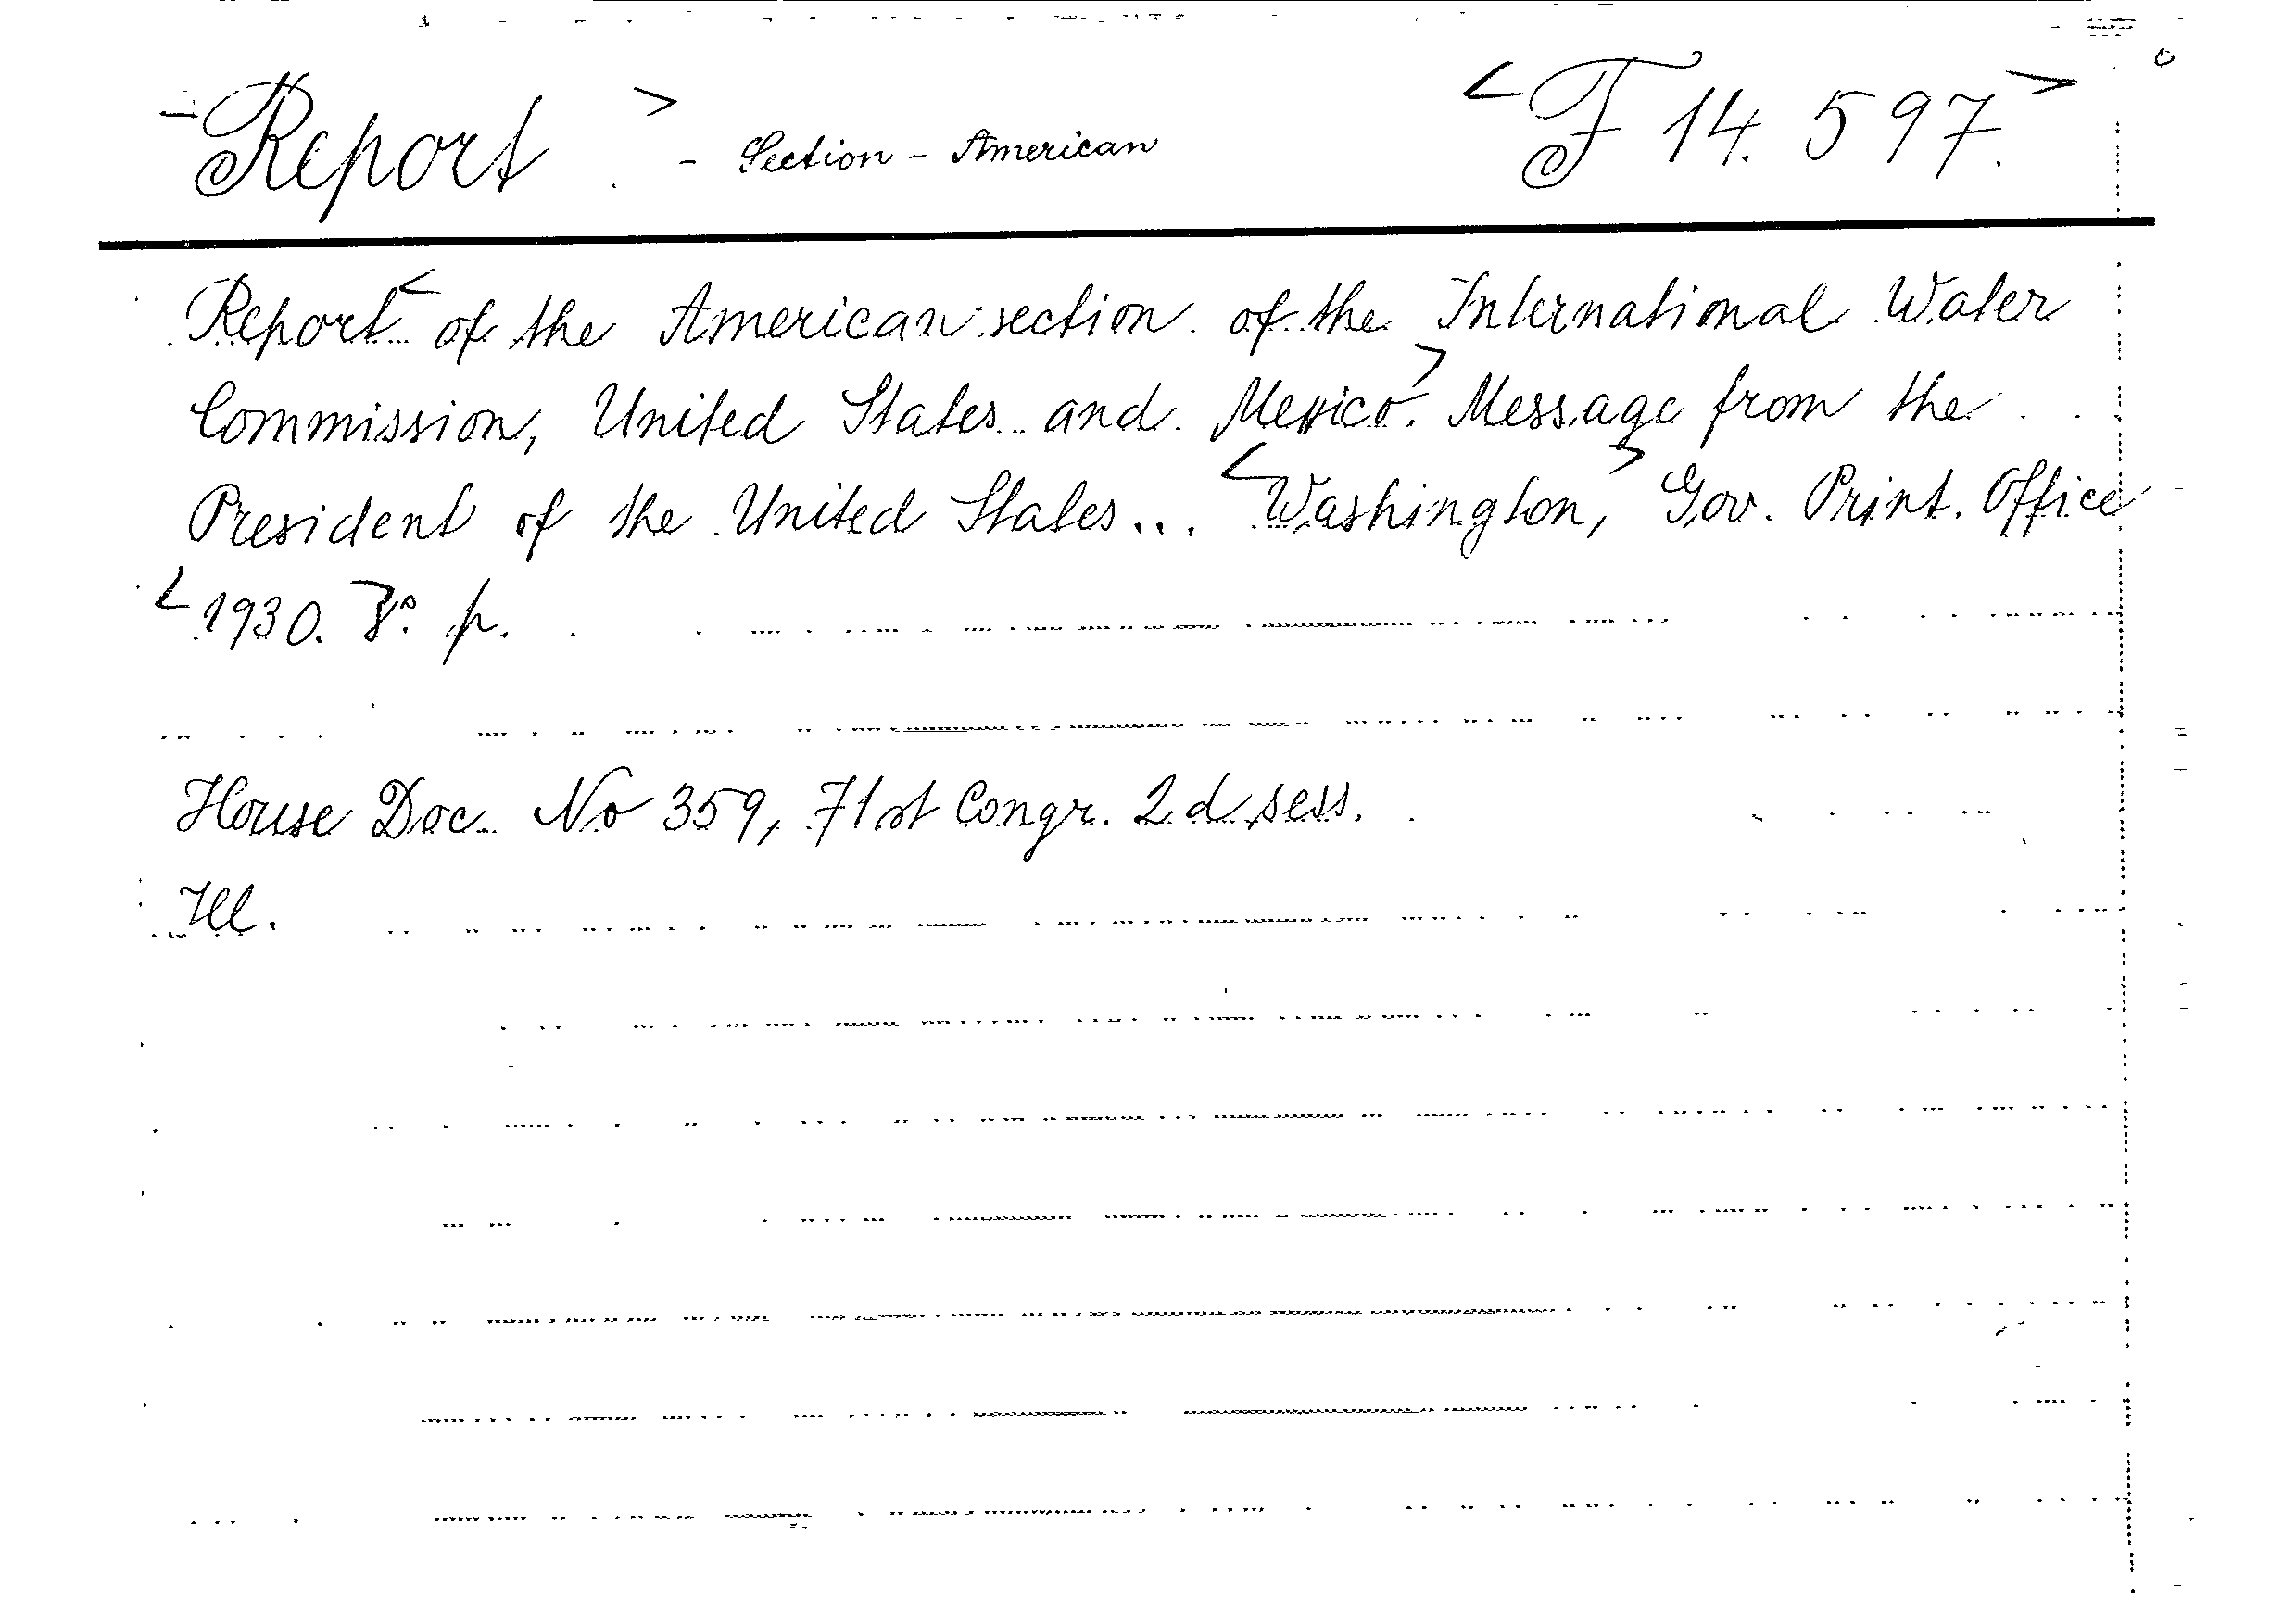 <Report> - Section - American <F 14.597.>
Report <of the American section of the International Water
Commission, United States and Mexico>. Message from the
President of the United States... <Washington,> Gov. Print. Office
<1930.> 8° p.
House Doc. No 359, 71st Congr. 2d sess.
Ill.